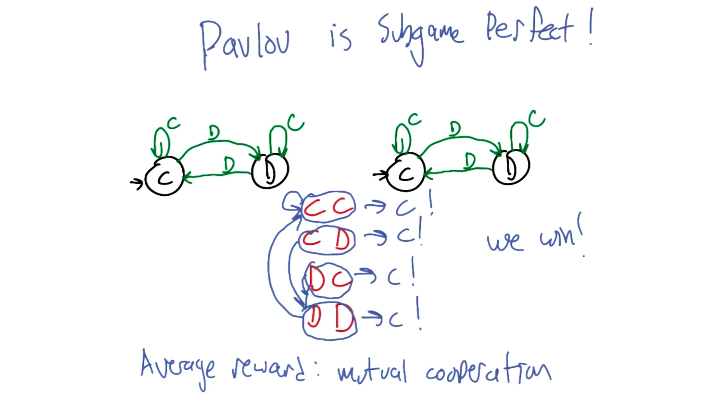 Pavlov is Subgame Perfect!
C D C C D C
D D
C D C D
C C → C!
C D → C!
we win!
D C → C!
D D → C!
Average reward: mutual cooperation